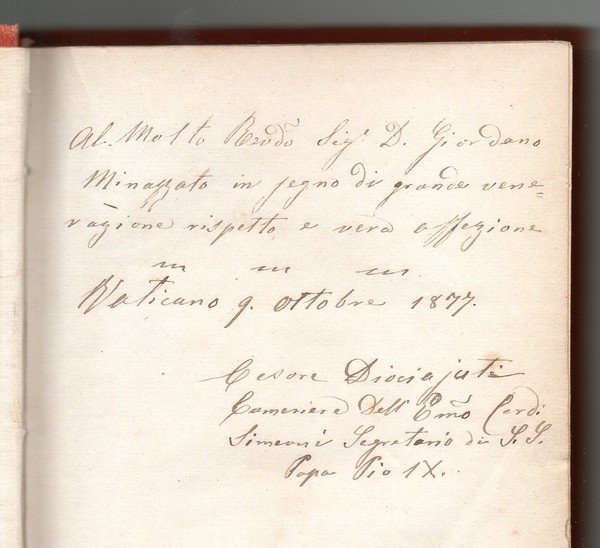 Al. Molto Revdo Sigr D. Giordano
Minazzato in segno di grande vene=
razione rispetto e vera affezione
Vaticano 9. ottobre 1877.
Cesare Diociajuti
Cameriere Dell' Emo Cardl
Simeoni Segretario di S. S.
Papa Pio IX.